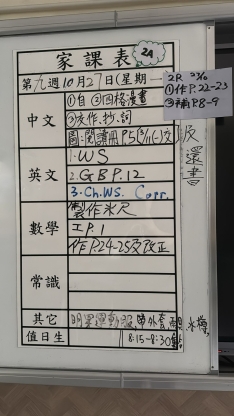 家課表
2A
第九週10月27日(星期一
2R 3%10
①作P.22-23
②補P.8-9
中文
①自 ②四格漫畫
③交作.抄.詞
圖:閱讀冊P.5(3/11交)
還書
英文
1.WS
2.GBP.12
3.Ch.WS. Corr.
數學
製作米尺
工P.1
作P.24-25及改正
常識
其它
明早運動服,帶外套,
水樽
值日生
8:15-8:30